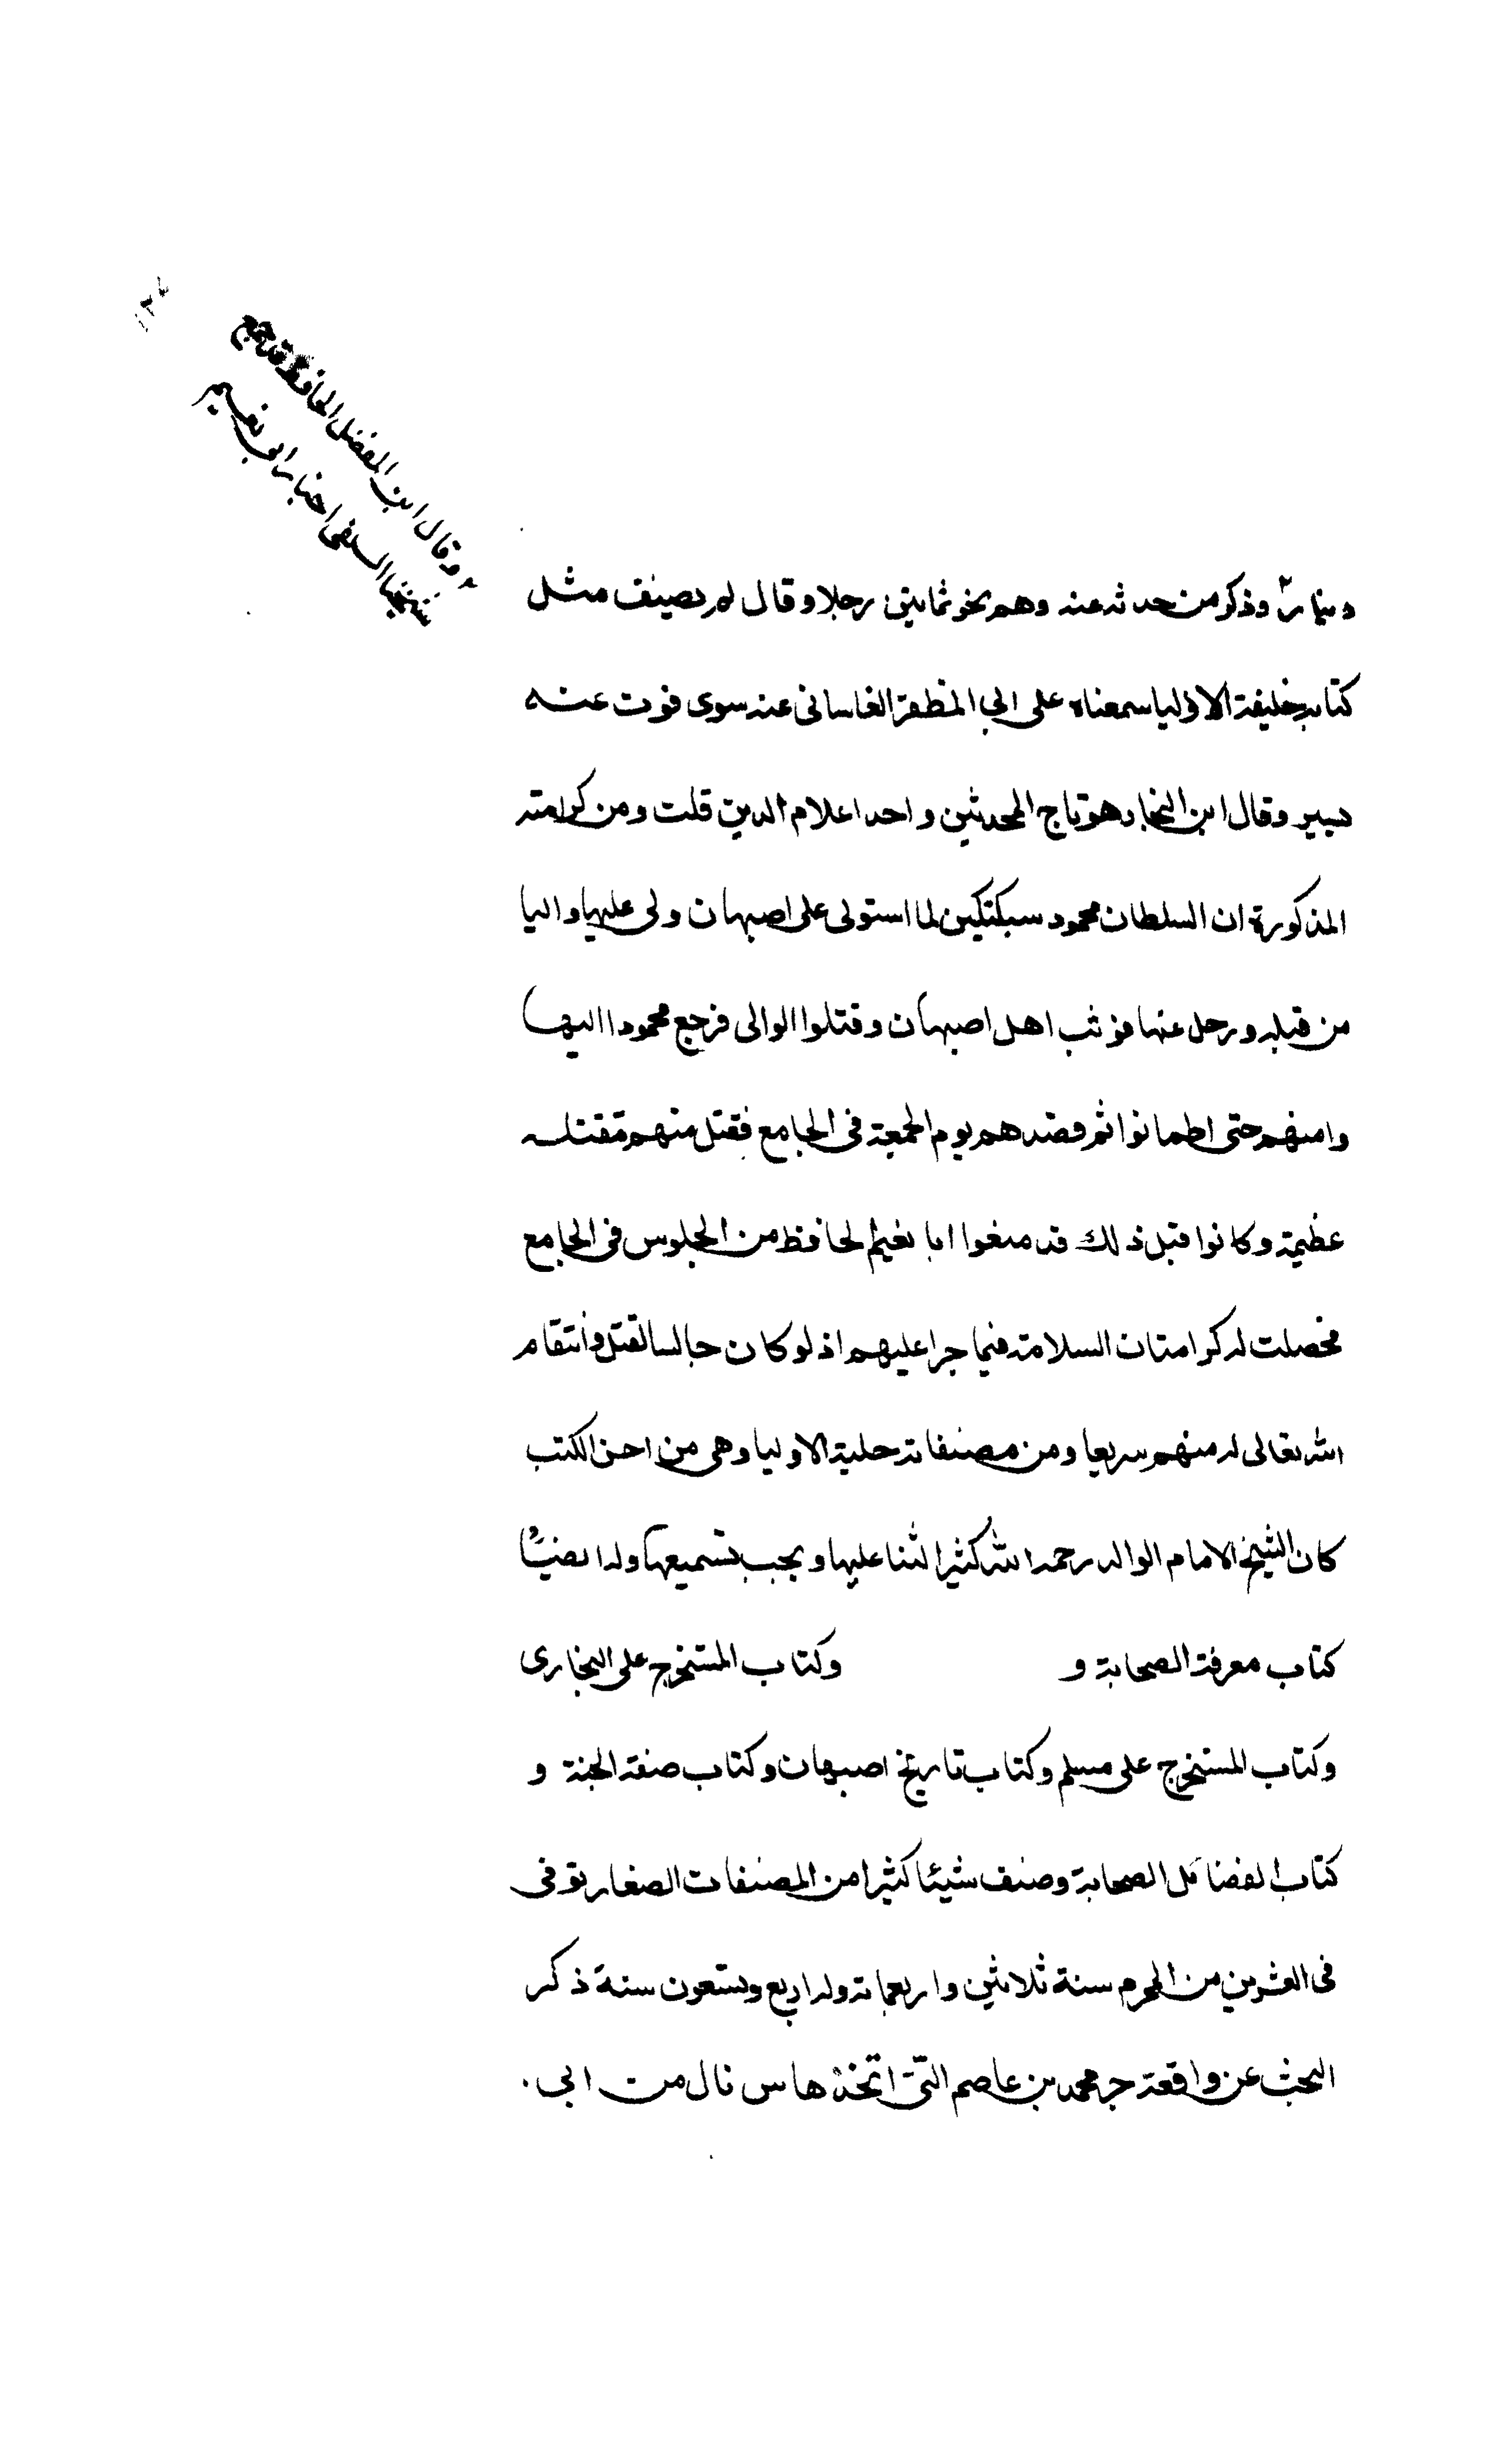 دينار وذكر من حدثه عنه وهم نحو ثمانين رجلا وقال لم يصنف مثل
كتابه خليفة الاوليا سمعناه على ابي المظفر القاساني عنه سوى فوت عنه
يسير وقال ابن النجار هو تاج المحدثين واحد اعلام الدين قلت ومن كرامته
المذكورة ان السلطان محمود سبكتكين لما استولى على اصبهان ولى عليها واليا
من قبله ورحل عنها فوثب اهل اصبهان وقتلوا الوالى فرجع محمودا اليها
وامنهم حتى اطمانوا ثم قصدهم يوم الجمعة فى الجامع فقتل منهم مقتله
عظيمة وكانوا قبل ذلك قد منعوا ابا نعيم الحافظ من الجلوس فى الجامع
فحصلت له كرامتان السلامة فيما جرا عليهم اذ لو كان جالسا لقتل وانتقام
الله تعالى له منهم سريعا ومن مصنفاته حلية الاوليا وهى من احسن الكتب
كان الشيخ الامام الوالد رحمه الله كثير الثنا عليها ويحب تسميعها وله ايضا
كتاب معرفة الصحابة و وكتاب المستخرج على البخارى
وكتاب المستخرج على مسلم وكتاب تاريخ اصبهان وكتاب صفة الجنة و
كتاب الفضائل الصحابة وصنف شيئا كثيرا من المصنفات الصغار توفى
فى العشرين من المحرم سنة ثلاثين واربعماية وله اربع وتسعون سنة ذكر
البحث عن واقعة جز محمد بن عاصم التى اتخذها س نال من ابي
وقال ابن المفضل الحافظ قد جمع
شيخنا السلفى اخبار ابى نعيم